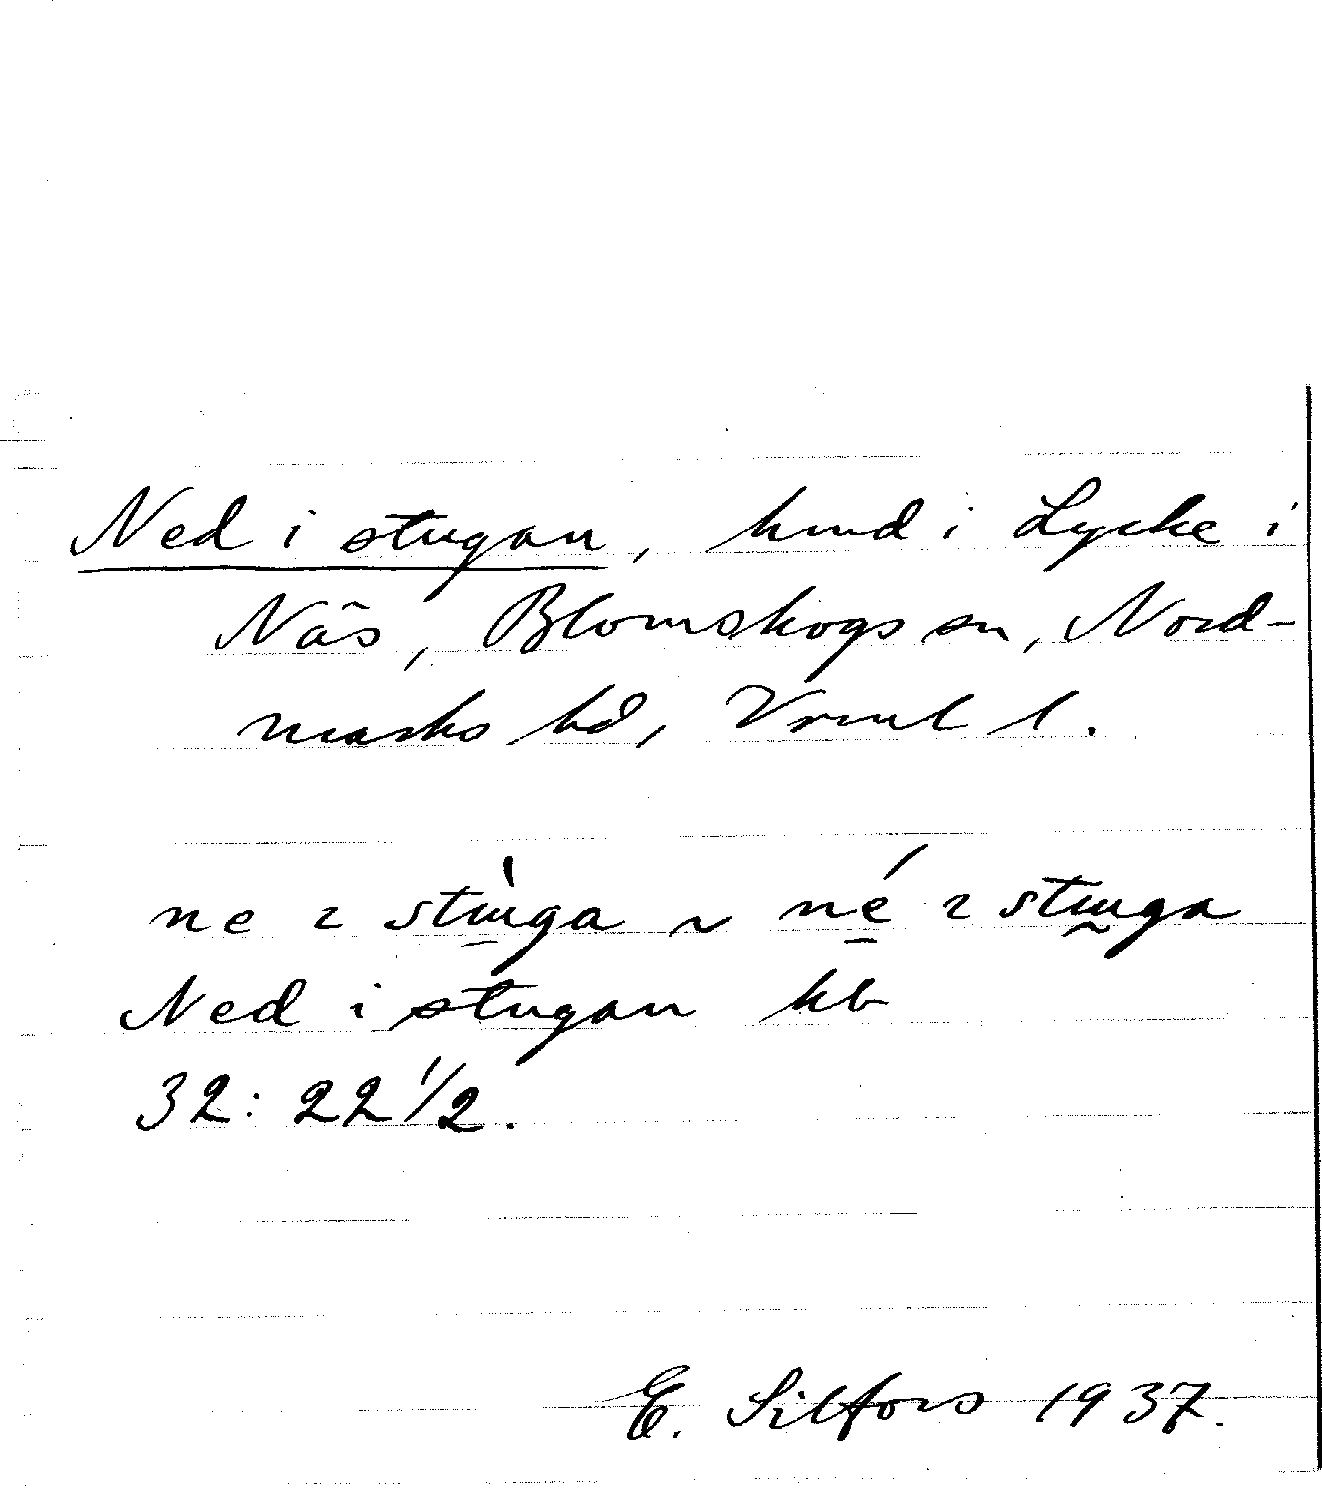 Ned i stugan, hmd i Lycke i
Näs, Blomskogs sn, Nord-
marks hd, Vrml l.
ne ɩ stɯ̀ga ~ né ɩ stɯga
Ned i stugan kb
32: 22 1/2.
E. Silfors 1937.